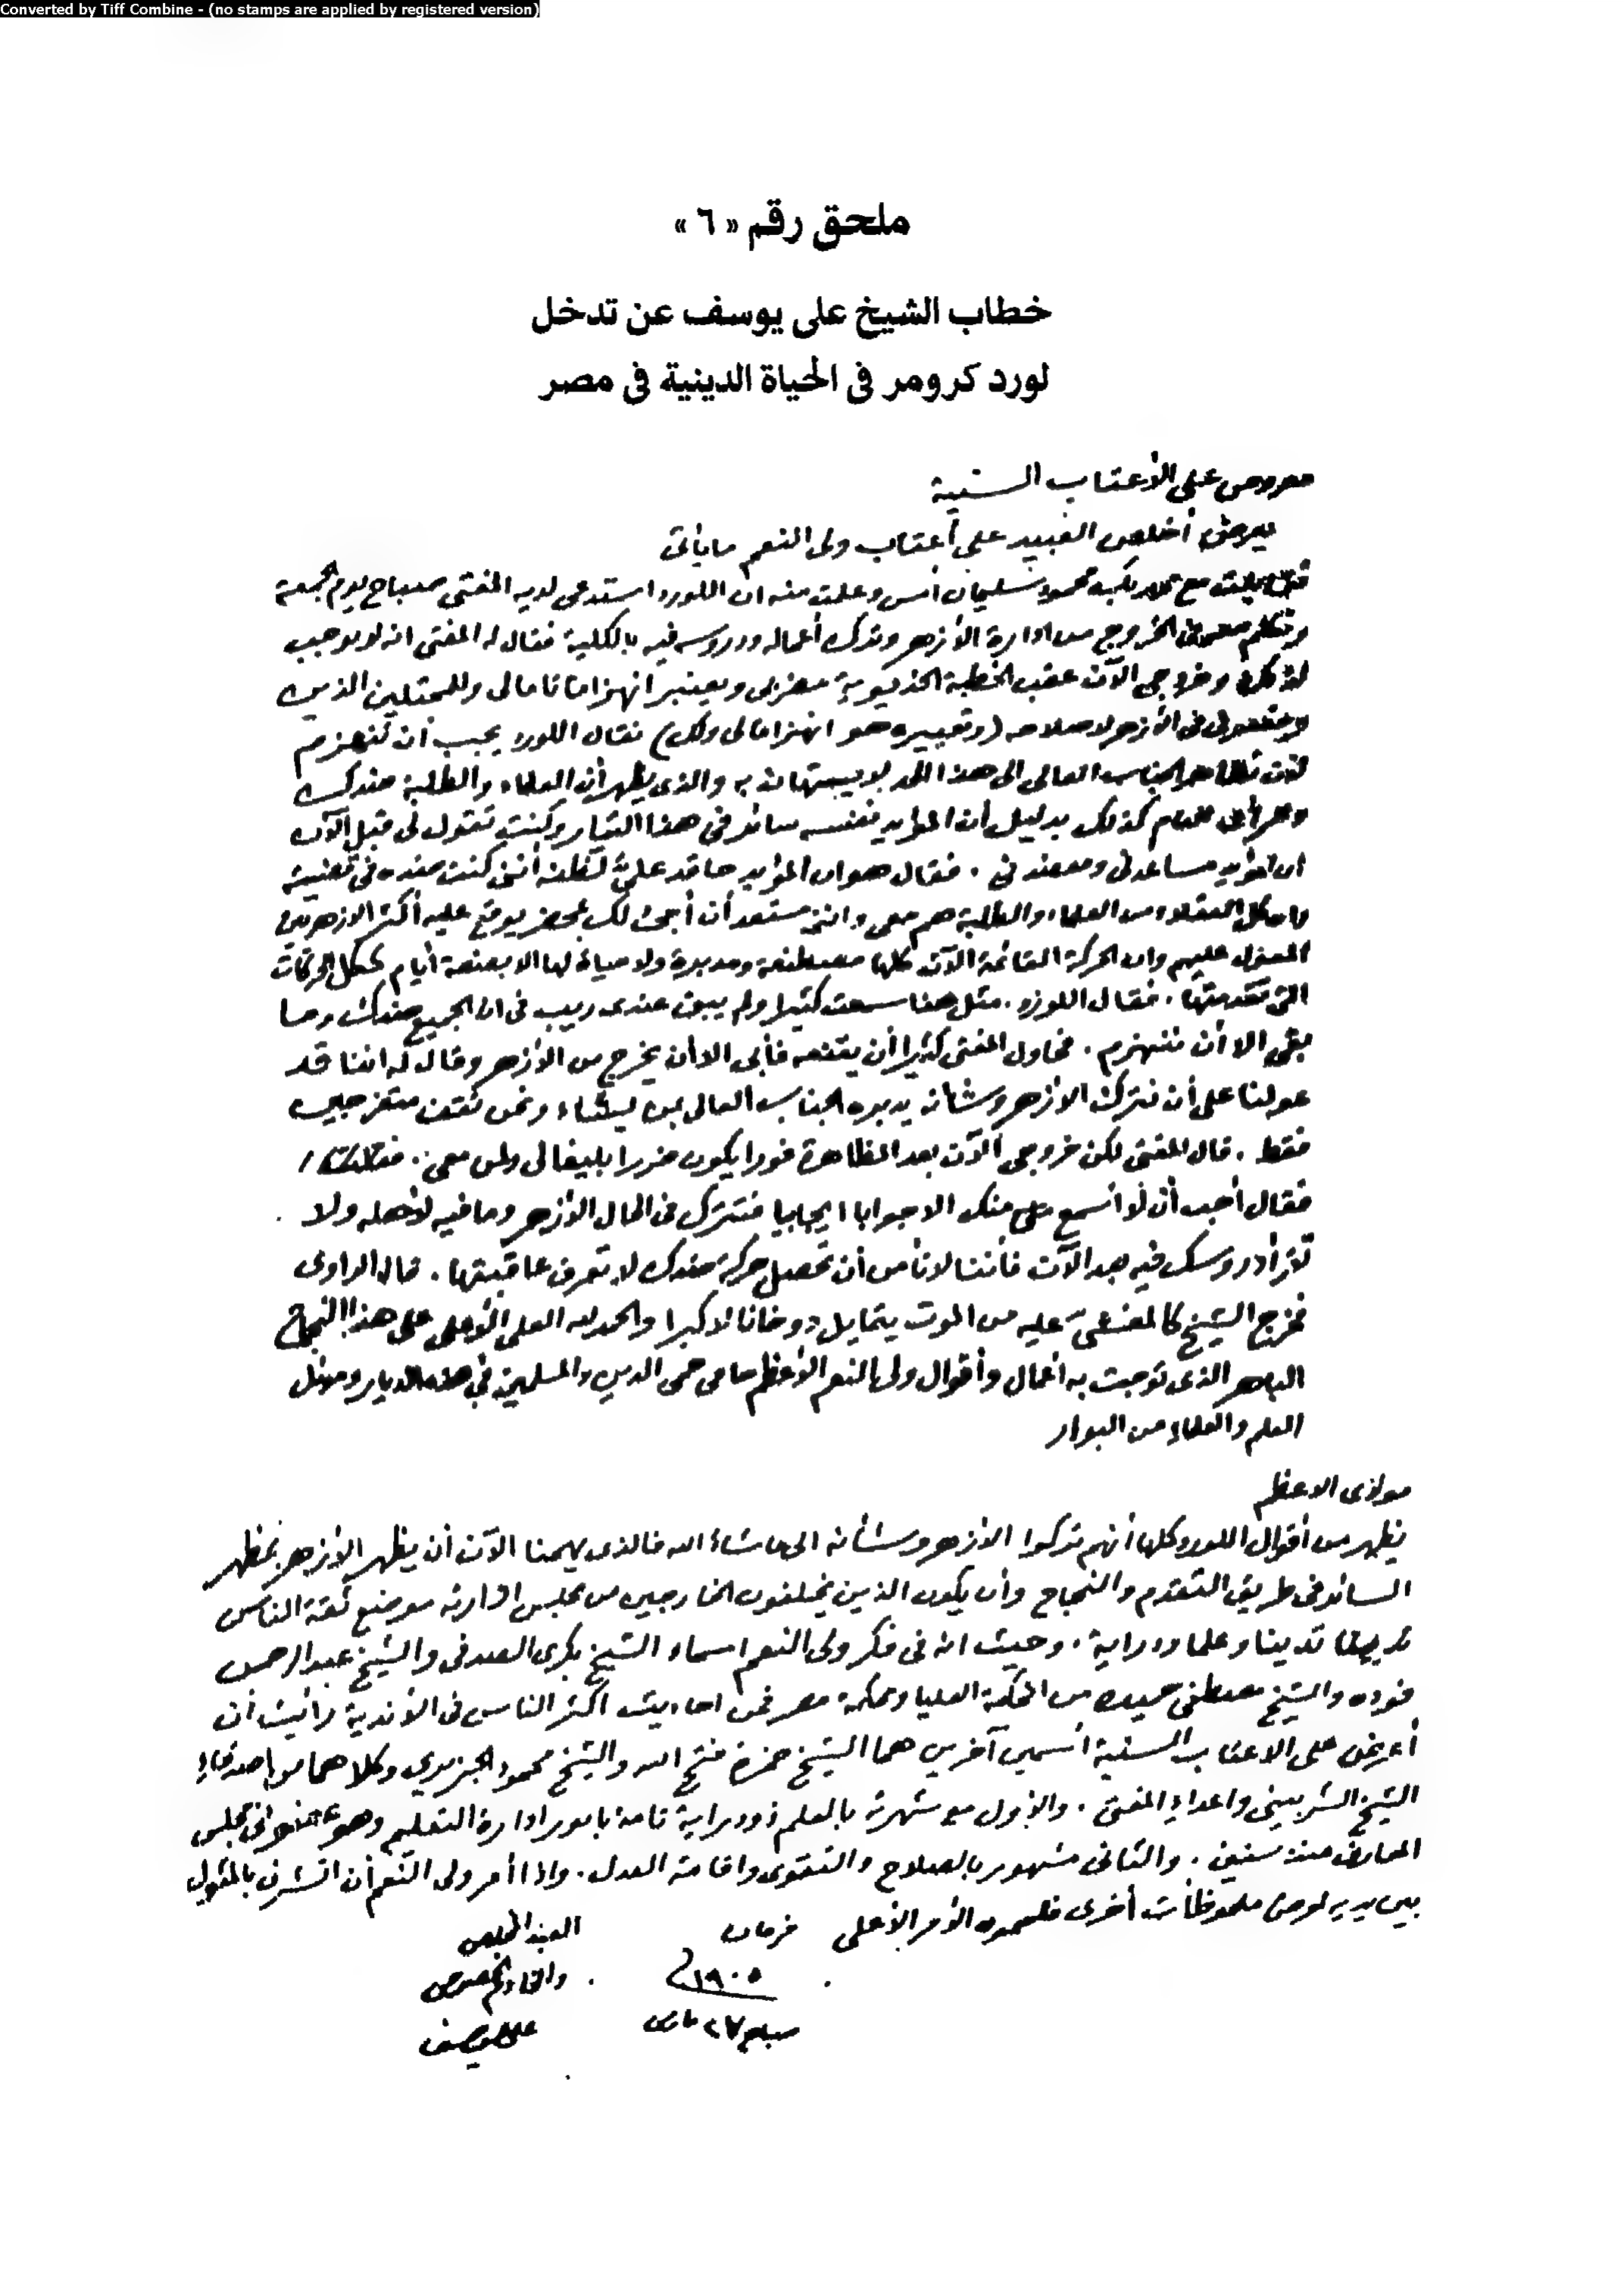 Converted by Tiff Combine - (no stamps are applied by registered version)
ملحق رقم « ٦ »
خطاب الشيخ على يوسف عن تدخل
لورد كرومر فى الحياة الدينية فى مصر
معروض على الأعتاب السنية
يعرض أخلص العبيد على أعتاب ولى النعم ما يأتى
مع محمود سليمان أمس وعلمت منه ان اللورد استدعى لديه المفتى صباح يوم الجمعة
وتكلم معه فى الخروج من ادارة الأزهر وترك أعماله ودروسه فيه بالكلية فقال له المفتى انه لا يوجب
وخروجى الآن عقب الخطبة الخديوية مضر بى ويعتبر انهزاما تاما لى وللمحتلين الذين
فى الأزهر لاصلاحه (وتعبيره هو انهزاما لى ولك) فقال اللورد يجب أن ننهزم
الجناب العالى الى هذا الحد لا يستهان به والذى يظهر أن العلماء والطلبة ضدك
العام كذلك بدليل أن المؤيد نفسه سائر فى هذا التيار وكنت تقول لى قبل الآن
ان المؤيد مساعدنى ومعضدنى . فقال هو ان المؤيد حاقد علىّ لظنه أننى كنت ضده فى قضيته
وان كل العقلاء من العلماء والطلبة هم معى واننى مستعد أن أجئ لك بمحضر يوقع عليه أكثر الازهريين
المعول عليهم وان الحركة القائمة الآن كلها مصطنعة ومدبرة ولا حياة لها الا بضعة أيام ككل الحركات
التى تقدمتها . فقال اللورد . مثل هذا سمعت كثيرا ولم يبق عندى ريب فى ان الجميع ضدك وما
بقى الا أن ننهزم . فحاول المفتى كثيرا أن يقنعه فأبى الا أن يخرج من الأزهر وقال له اننا قد
عولنا على أن نترك الازهر وشأنه يديره الجناب العالى بمن يشاء ونحن نقف متفرجين
فقط . قال المفتى لكن خروجى الآن بعد المظاهرة فورا يكون ضررا بليغا لى ولمن معى .
فقال أحب أن لا أسمع منك الا جوابا ايجابيا فتترك فى الحال الأزهر وما فيه لأهله ولا
تقرأ دروسك فيه بعد الآن فأننا لا نأمن أن تحصل حركة ضدك لا تعرف عاقبتها . قال الراوى
فخرج الشيخ كالمغشىّ عليه من الموت يتمايل والحمد لله العلى الأعلى على هذا النجاح
الباهر الذى توجت به أعمال وأقوال ولى النعم الأعظم حامى حمى الدين والمسلمين فى هذه الديار
العلم والعلماء من البوار
مولاى الاعظم
يظهر من أقوال اللورد كلها أنهم تركوا الأزهر وشأنه الى ما شاء الله فالذى يهمنا الآن أن يظهر الأزهر بمظهر
السائر فى طريق التقدم والنجاح وأن يكون الذين يخلفون الخارجين من مجلس ادارته موضع ثقة الناس
تدينا وعلما ودراية . وحيث انه فى فكر ولى النعم اسماء الشيخ بكرى الصدفى والشيخ عبد الرحمن
فوده والشيخ مصطفى من المحكمة العليا ومحكمة مصر فمن احاديث اكثر الناس فى الأندية رأيت أن
أعرض على الاعتاب السنية أسمين آخرين هما الشيخ حمزة فتح الله والشيخ محمود الجزيرى وكلاهما من اصدقاء
الشيخ الشربينى واعداء المفتى . والأول مع شهرته بالعلم ذو دراية تامة بامور ادارة التعليم وهو عضو فى مجلس
المعارف منذ سنين . والثانى مشهور بالصلاح والتقوى واقامة العدل . واذا أمر ولى النعم أن اتشرف بالمثول
بين يديه لعرض ملحوظات أخرى الأمر الأعلى فرمان
العبد المخلص
والخادم
على يوسف
١٩٠٥م
صباح ٢٧ مارس